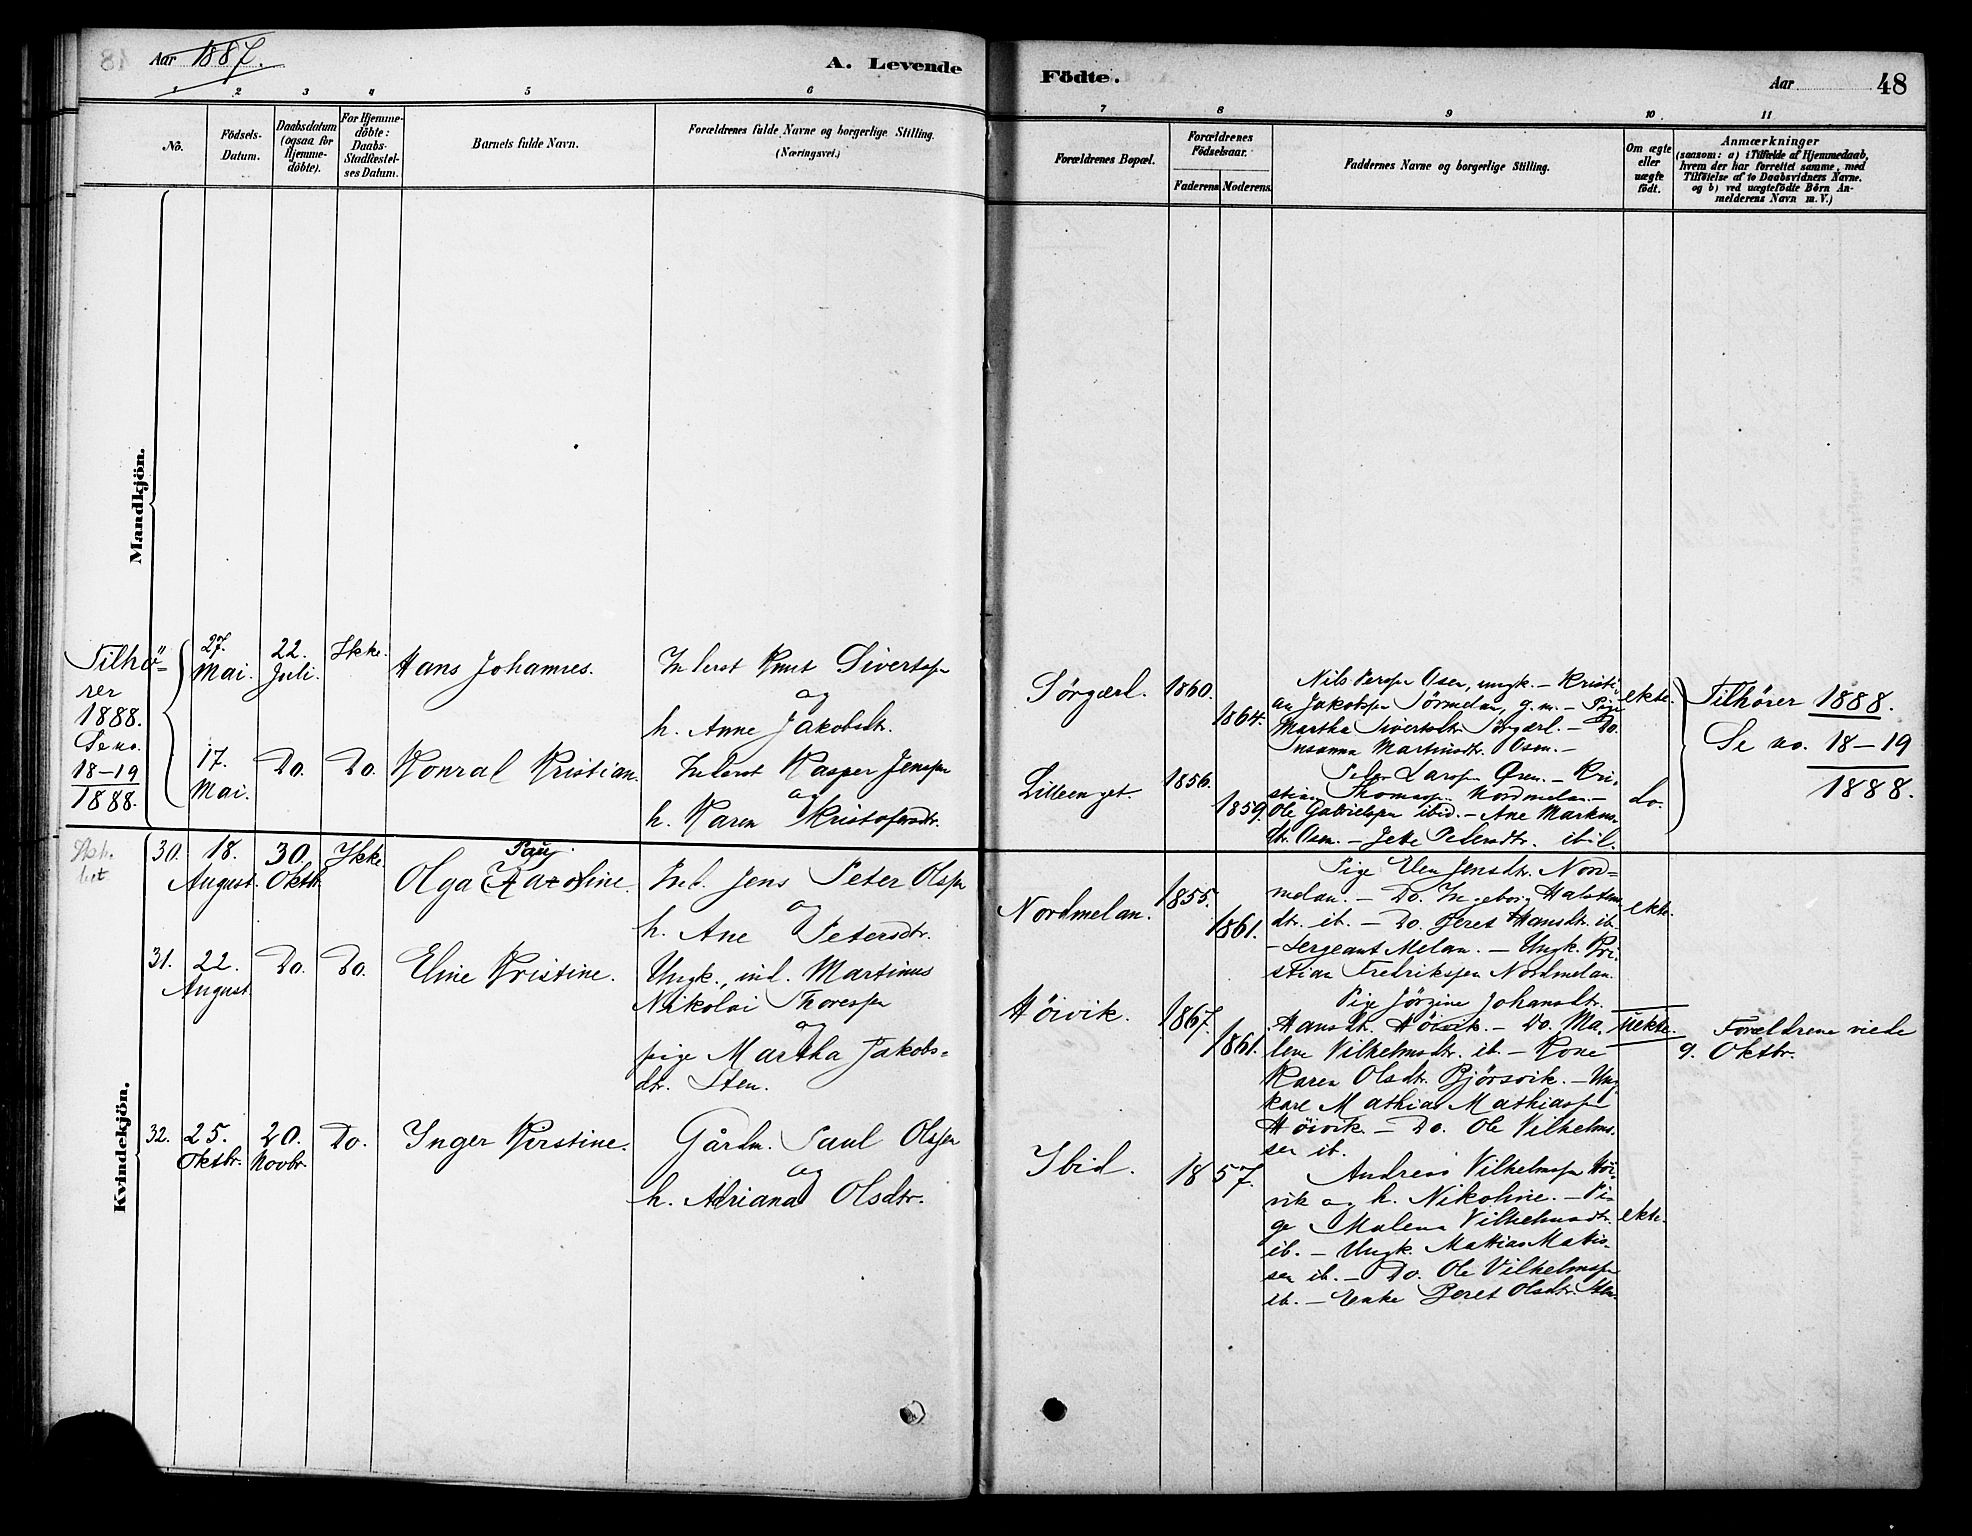 Aar 1887.
A. Levende
Födte.
Aar
48
1 2 3 4 5 6
7 8 9 10 11
No.
Födsels-
Datum.
Daabsdatum
(ogsaa for
Hjemme-
döbte).
For Hjemme-
döbte:
Daabs-
Stadfæstel-
ses Datum.
Barnets fulde Navn.
Forældrenes fulde Navne og borgerlige Stilling.
(Næringsvei.)
Forældrenes Bopæl.
Forældrenes
Födselsaar.
Faderens
Moderens
Faddernes Navne og borgerlige Stilling.
Om ægte
eller
uægte
födt.
Anmærkninger
(saasom: a) i Tilfælde af Hjemmedaab,
hvem der har forrettet samme, med
Tilföielse af to Daabsvidners Navne.
og b) ved uægtefödte Börn An-
melderens Navn m. V.)
Mandkjön.
Tilhö-
rer
1888.
Se no.
18-19
1888.
27.
Mai.
22.
Juli.
Ikke.
Hans Johannes.
Inderst Knut Sivertsen
og
h. Anne Jakobsdtr.
Sörgærl.
1860.
1864.
Nils Persen Osen, ungk. - Kristi-
an Jakobsen Sörmelan, g.m. - Pige
Martha Sivertsdtr. Sörgærl. - Do.
Susanna Martinsdtr. Osen. -
ekte.
Tilhörer 1888.
Se no. 18-19
1888.
17.
Mai.
Do.
Do.
Konrad Kristian.
Inderst Kasper Jensen
og
h. Karen Kristofersdtr.
Lilleenget.
1856.
1859.
Peter Larsen Ören. - Kri-
stian Thomassen Nordmelan. -
Ole Gabrielsen ibid. - Ane Markus-
dtr. Osen. - Jete Petersdtr. ibid.
do.
Kvindekjön.
30.
18.
August.
30.
Oktbr.
Ikke
Pau
Olga Karoline.
Ind. Jens Peter Olsen
og
h. Ane Petersdtr.
Nordmelan.
1855.
1861.
Pige Elen Jensdtr. Nord-
melan. - Do. Ingeborg Halsten-
dtr. ib. - Do. Beret Hansdtr. ib.
- Sergeant Melan. - Ungk. Kri-
stian Fredriksen Nordmelan.
ekte.
31.
22.
August.
Do.
Do.
Eline Kristine.
Ungk., ind. Martinus
Nikolai Thoresen
og
pige Martha Jakobs-
dtr. Sten.
Höivik.
1867.
1861.
Pige Jörgine Johansdtr.
Hansdt. Höivik. - Do. Ma-
lene Vilhelmsdtr. ib. - Kone
Karen Olsdtr. Björsvik. - Ung-
karl Mathias Mathiasen
Höivik. - Do. Ole Vilhelm-
sen ib.
uekte.
Forældrene viede
9. Oktbr.
32.
25.
Oktbr.
20.
Novbr.
Do.
Inger Kerstine.
Gårdm. Paul Olsen
og
h. Adriana Olsdtr.
Ibid.
1857.
Andreas Vilhelmsen Höi-
vik og h. Nikoline. - Pi-
ge Malena Vilhelmsdtr.
ib. - Ungk. Mattias Matis-
sen ib. - Do. Ole Vilhelmsen
ib. - Enke Beret Olsdtr. Sten.
ekte.